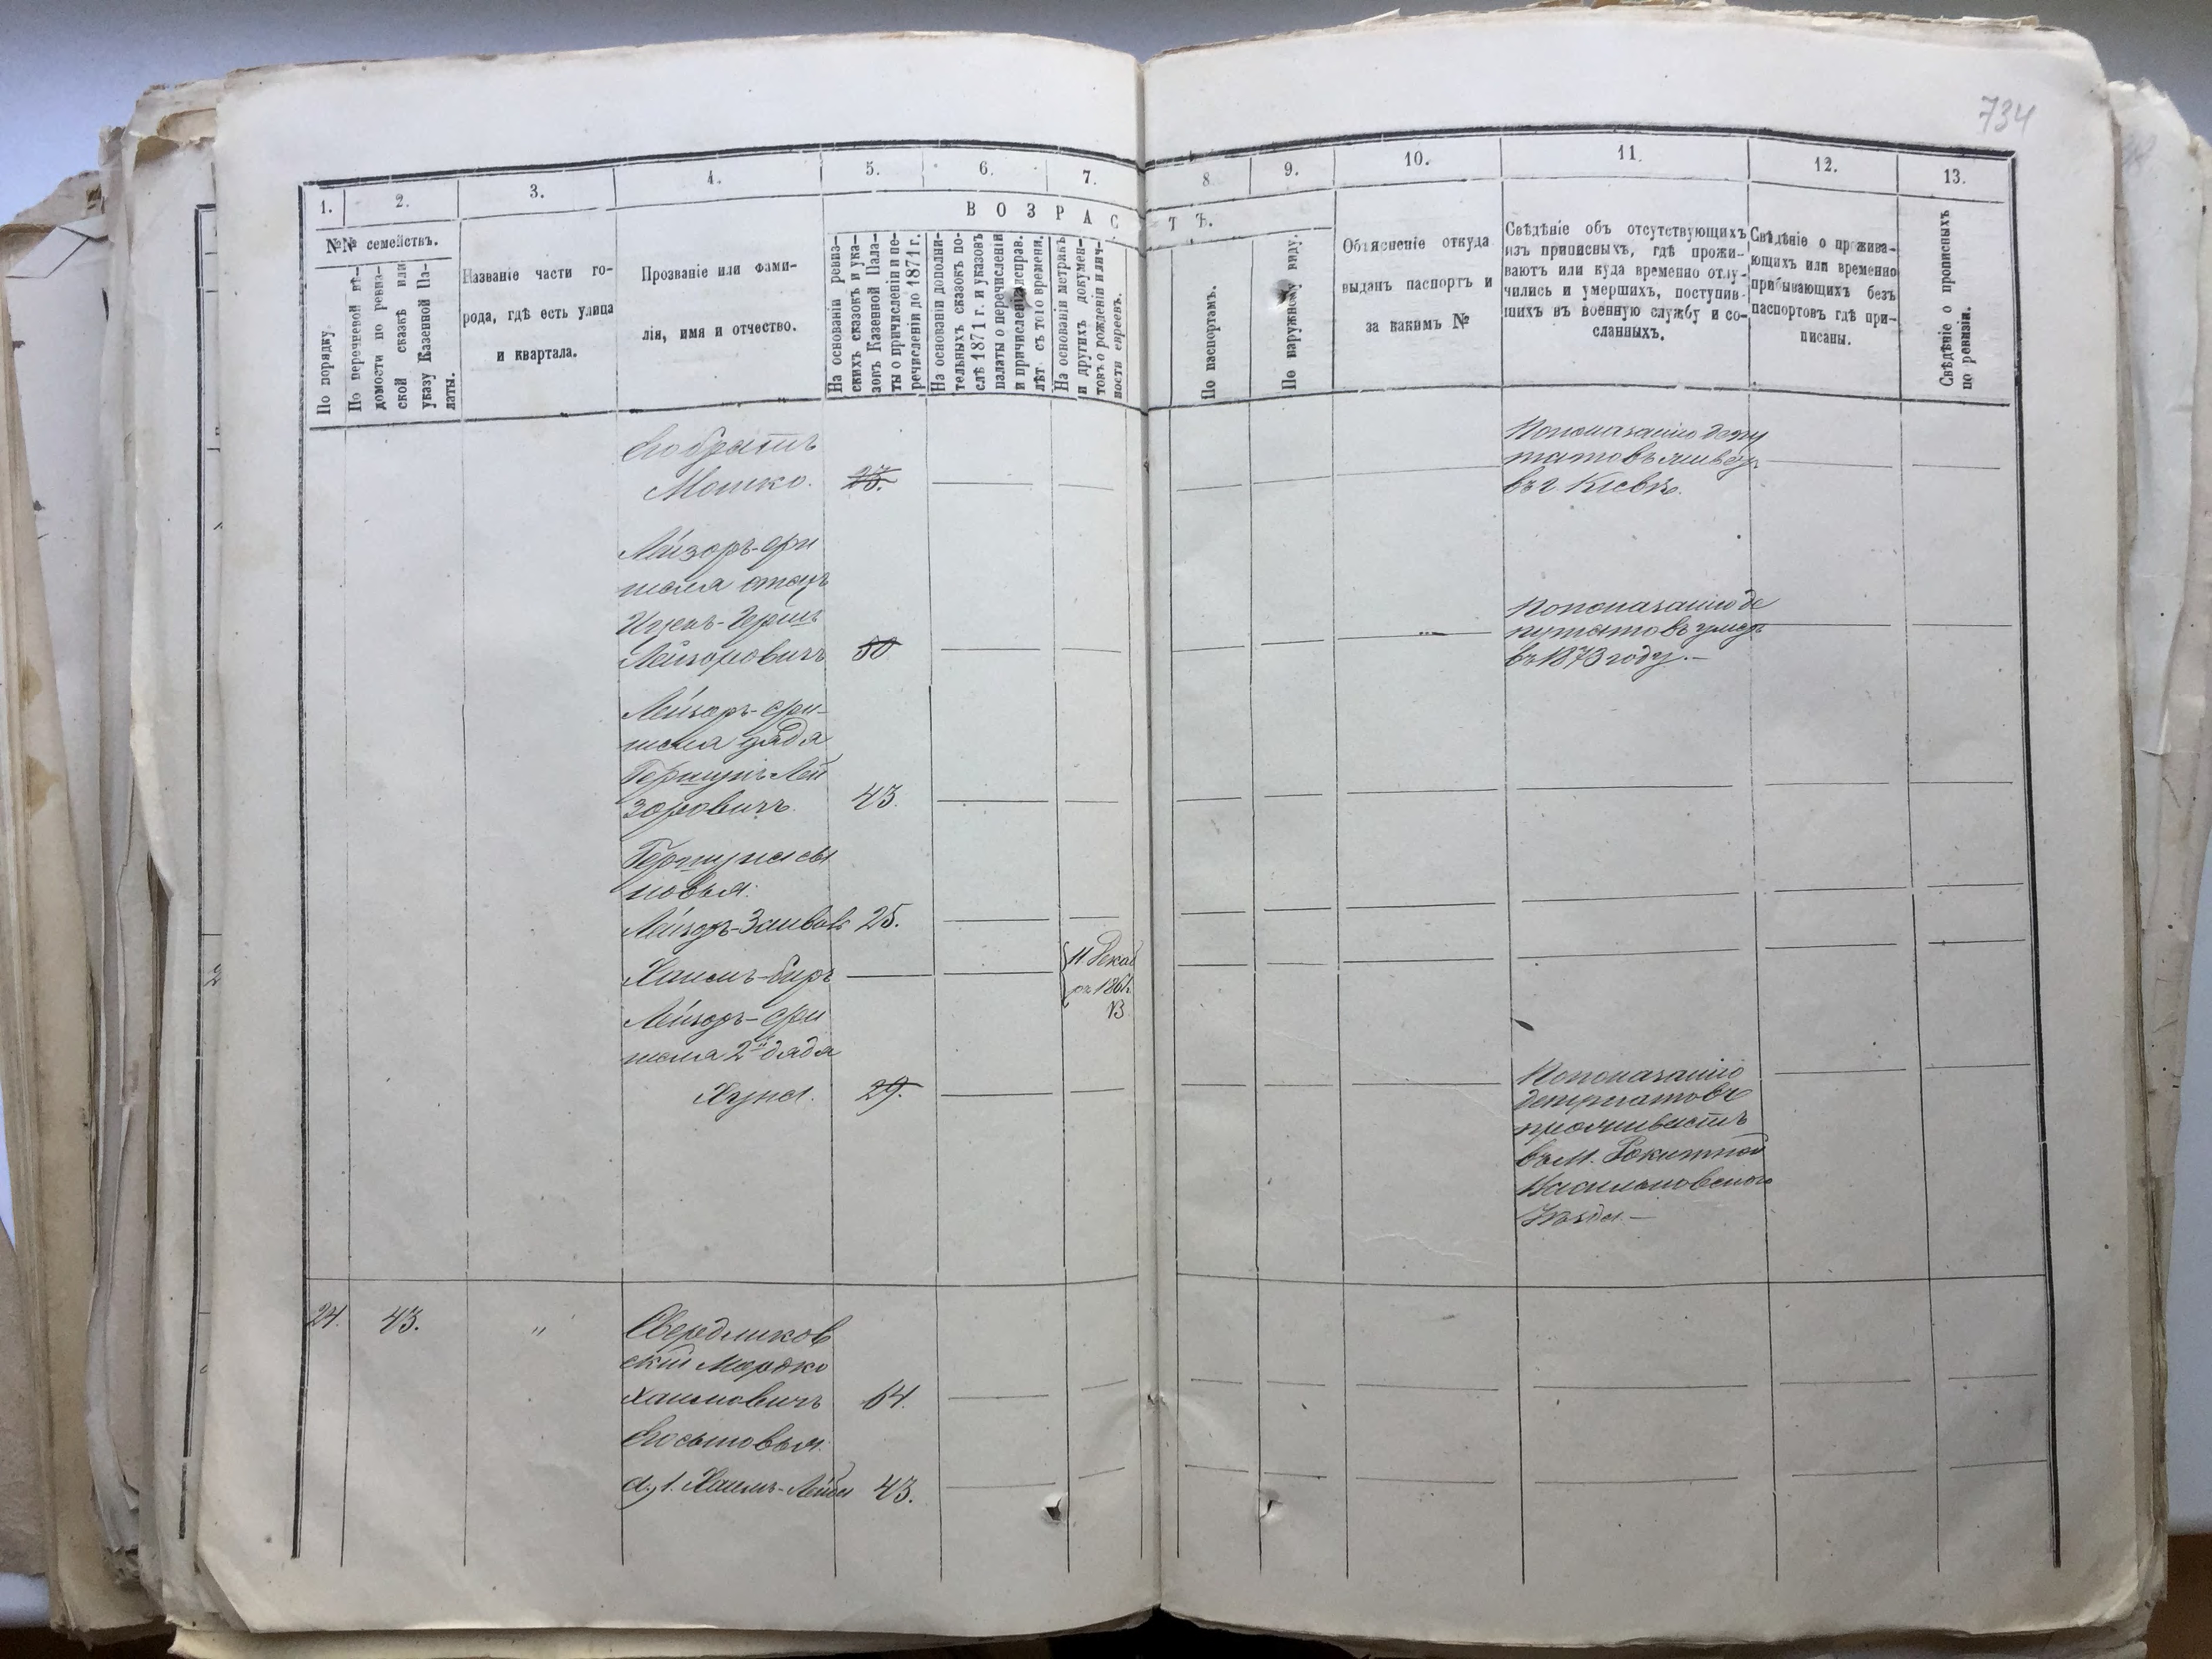 734
1.
2.
3.
4.
5.
6.
7.
8
9.
10.
11.
12.
13.
В О З Р А С Т Ъ.
№№ семействъ.
По порядку
По перечневой вѣ-
домости по ревиз-
ской сказкѣ или
указу Казенной Па-
латы.
Названіе части го-
рода, гдѣ есть улица
и квартала.
Прозваніе или фами-
лія, имя и отчество.
На основаніи ревиз-
скихъ сказокъ и ука-
зовъ Казенной Пала-
ты о причисленіи и пе-
речисленіи до 1871 г.
На основаніи дополни-
тельныхъ сказокъ по-
слѣ 1871 г. и указовъ
палаты о перечисленіи
и причисленіи исправ.
лѣт съ того времени.
На основаніи метрикъ
и другихъ докумен-
товъ о рожденіи и лич-
ности евреевъ.
По паспортамъ.
По наружному виду.
Объясненіе откуда
выданъ паспортъ и
за какимъ №
Свѣдѣніе объ отсутствующихъ
изъ приписныхъ, гдѣ прожи-
ваютъ или куда временно отлу-
чились и умершихъ, поступив-
шихъ въ военную службу и со-
сланныхъ.
Свѣдѣніе о прожива-
ющихъ или временно
прибывающихъ безъ
паспортовъ гдѣ при-
писаны.
Свѣдѣніе о прописныхъ
по ревизіи.
Его братъ
Мошко. 23.
По показанію депу
татовъ живъ
въ г. Кіевѣ.
Лейзоръ-Фри
шеля отецъ
Лейзоровичъ 50
По показанію де
путатовъ умеръ
въ 1873 году.—
Лейзоръ-Фри-
шеля дядя
Гершунъ Лей
зоровичъ. 43.
Гершуна сы
новья:
Лейзоръ-Зейвель 25.
Хаимъ-Беръ
11 Декаб
13
Лейзоръ-Фри
шеля 2й дядя
Хуна. 29.
По показанію
депутатовъ
проживаетъ
въ м. Рокитной
Васильковского
Уѣзда.—
24. 43. "
Свердликов
скій Мордко
Хаимовичъ 64.
Его сыновья:
а., 1. Хаимъ-Лейба 43.